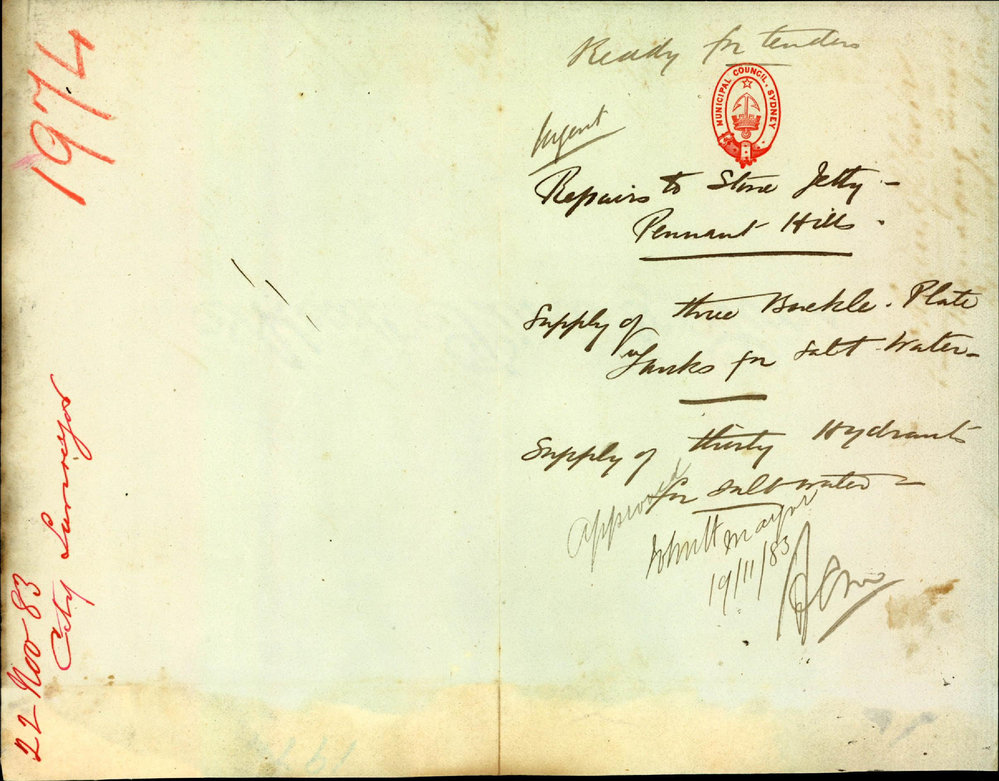 1974
22 Nov 83
City Surveyor
Ready for tenders
MUNICIPAL COUNCIL, SYDNEY
Urgent
Repairs to Stone Jetty -
Pennant Hills -
Supply of three Buckle-Plate
Tanks for Salt-Water -
Supply of thirty Hydrants
for Salt water -
Approved
Mayor
19/11/83